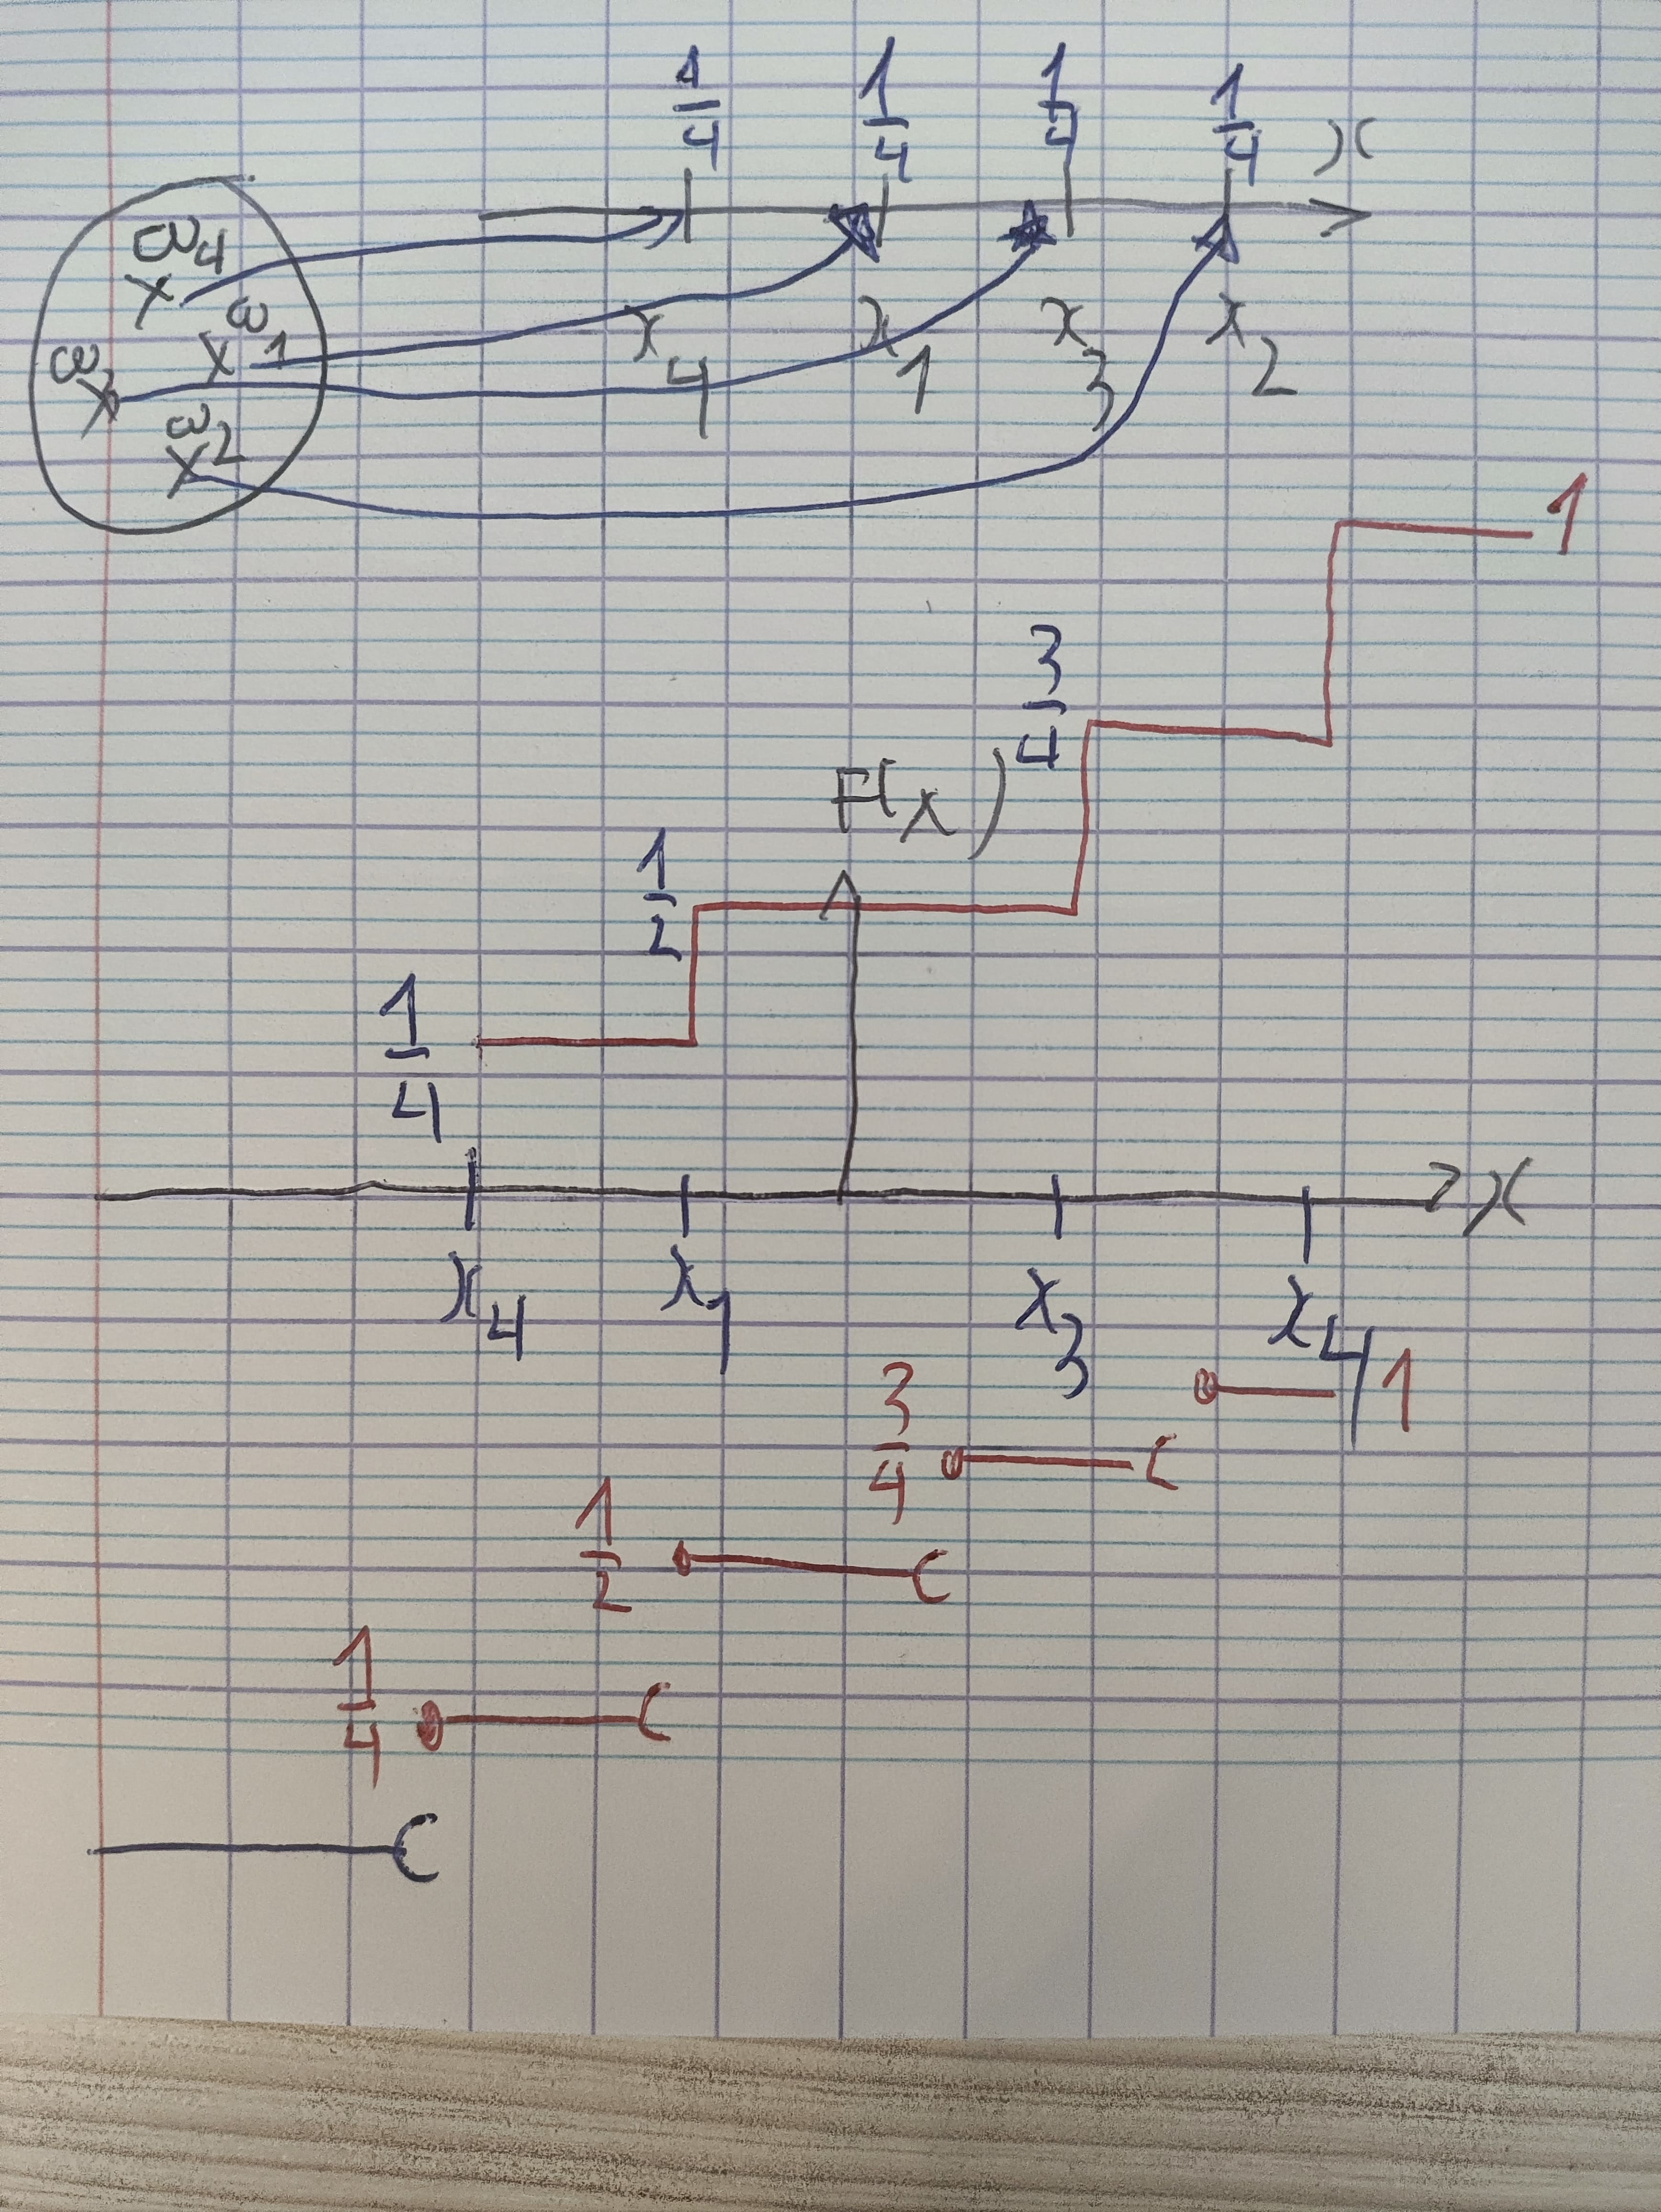 1/4 1/4 1/4 1/4 x
ω4
ω1
ω3
ω2
x4 x1 x3 x2
1
3/4
F(x)
1/2
1/4
x
x4 x1 x3 x4
1
3/4
1/2
1/4